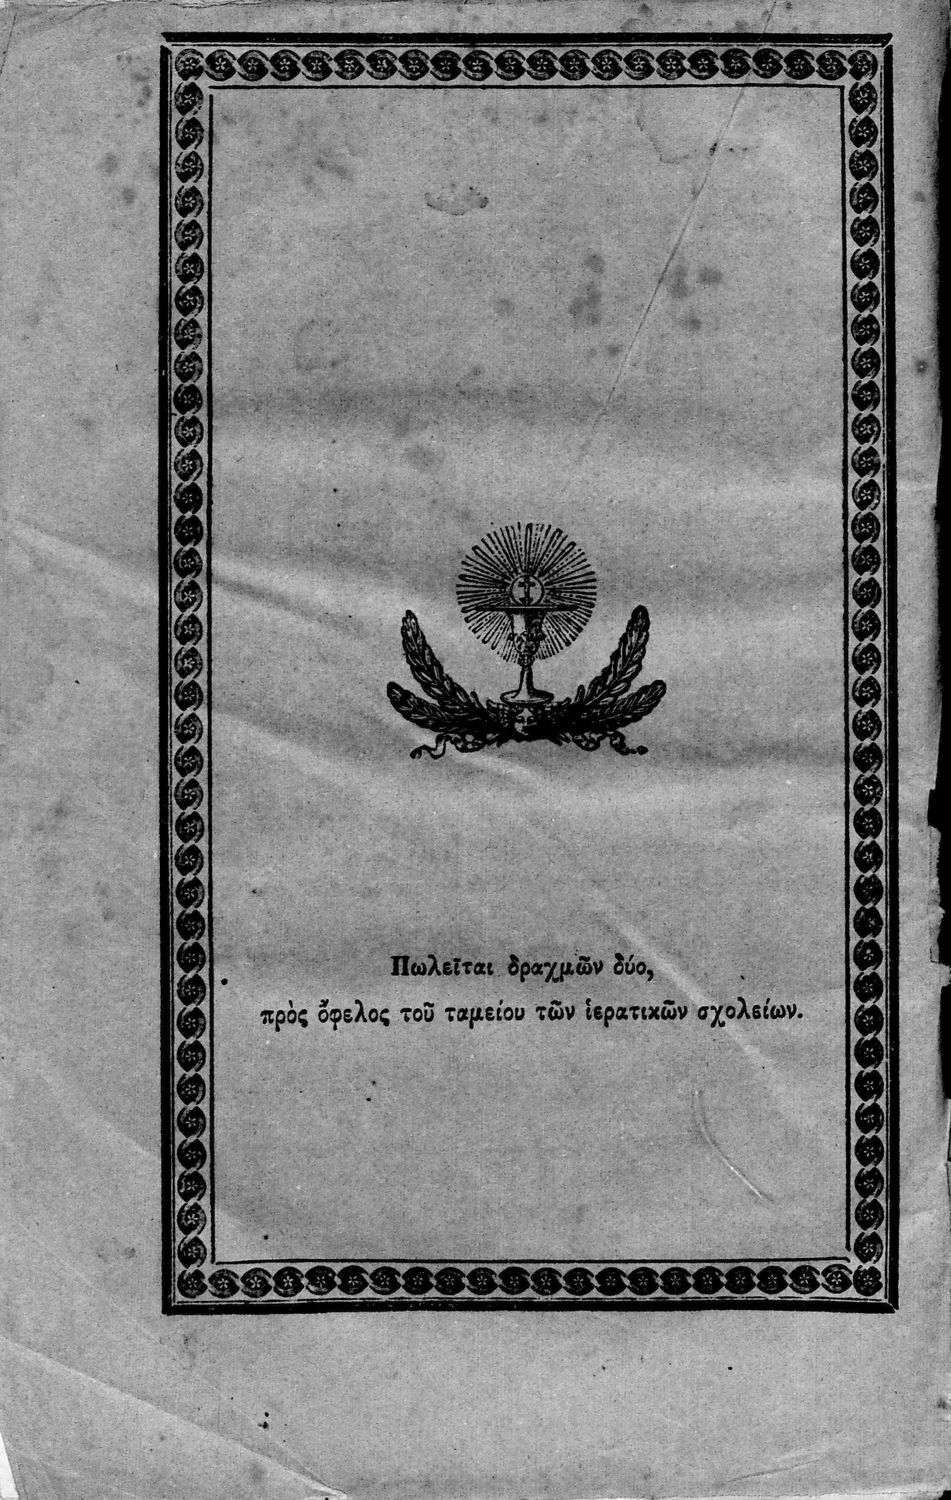 Πωλεῖται δραχμῶν δύο,
πρὸς ὄφελος τοῦ ταμείου τῶν ἱερατικῶν σχολείων.